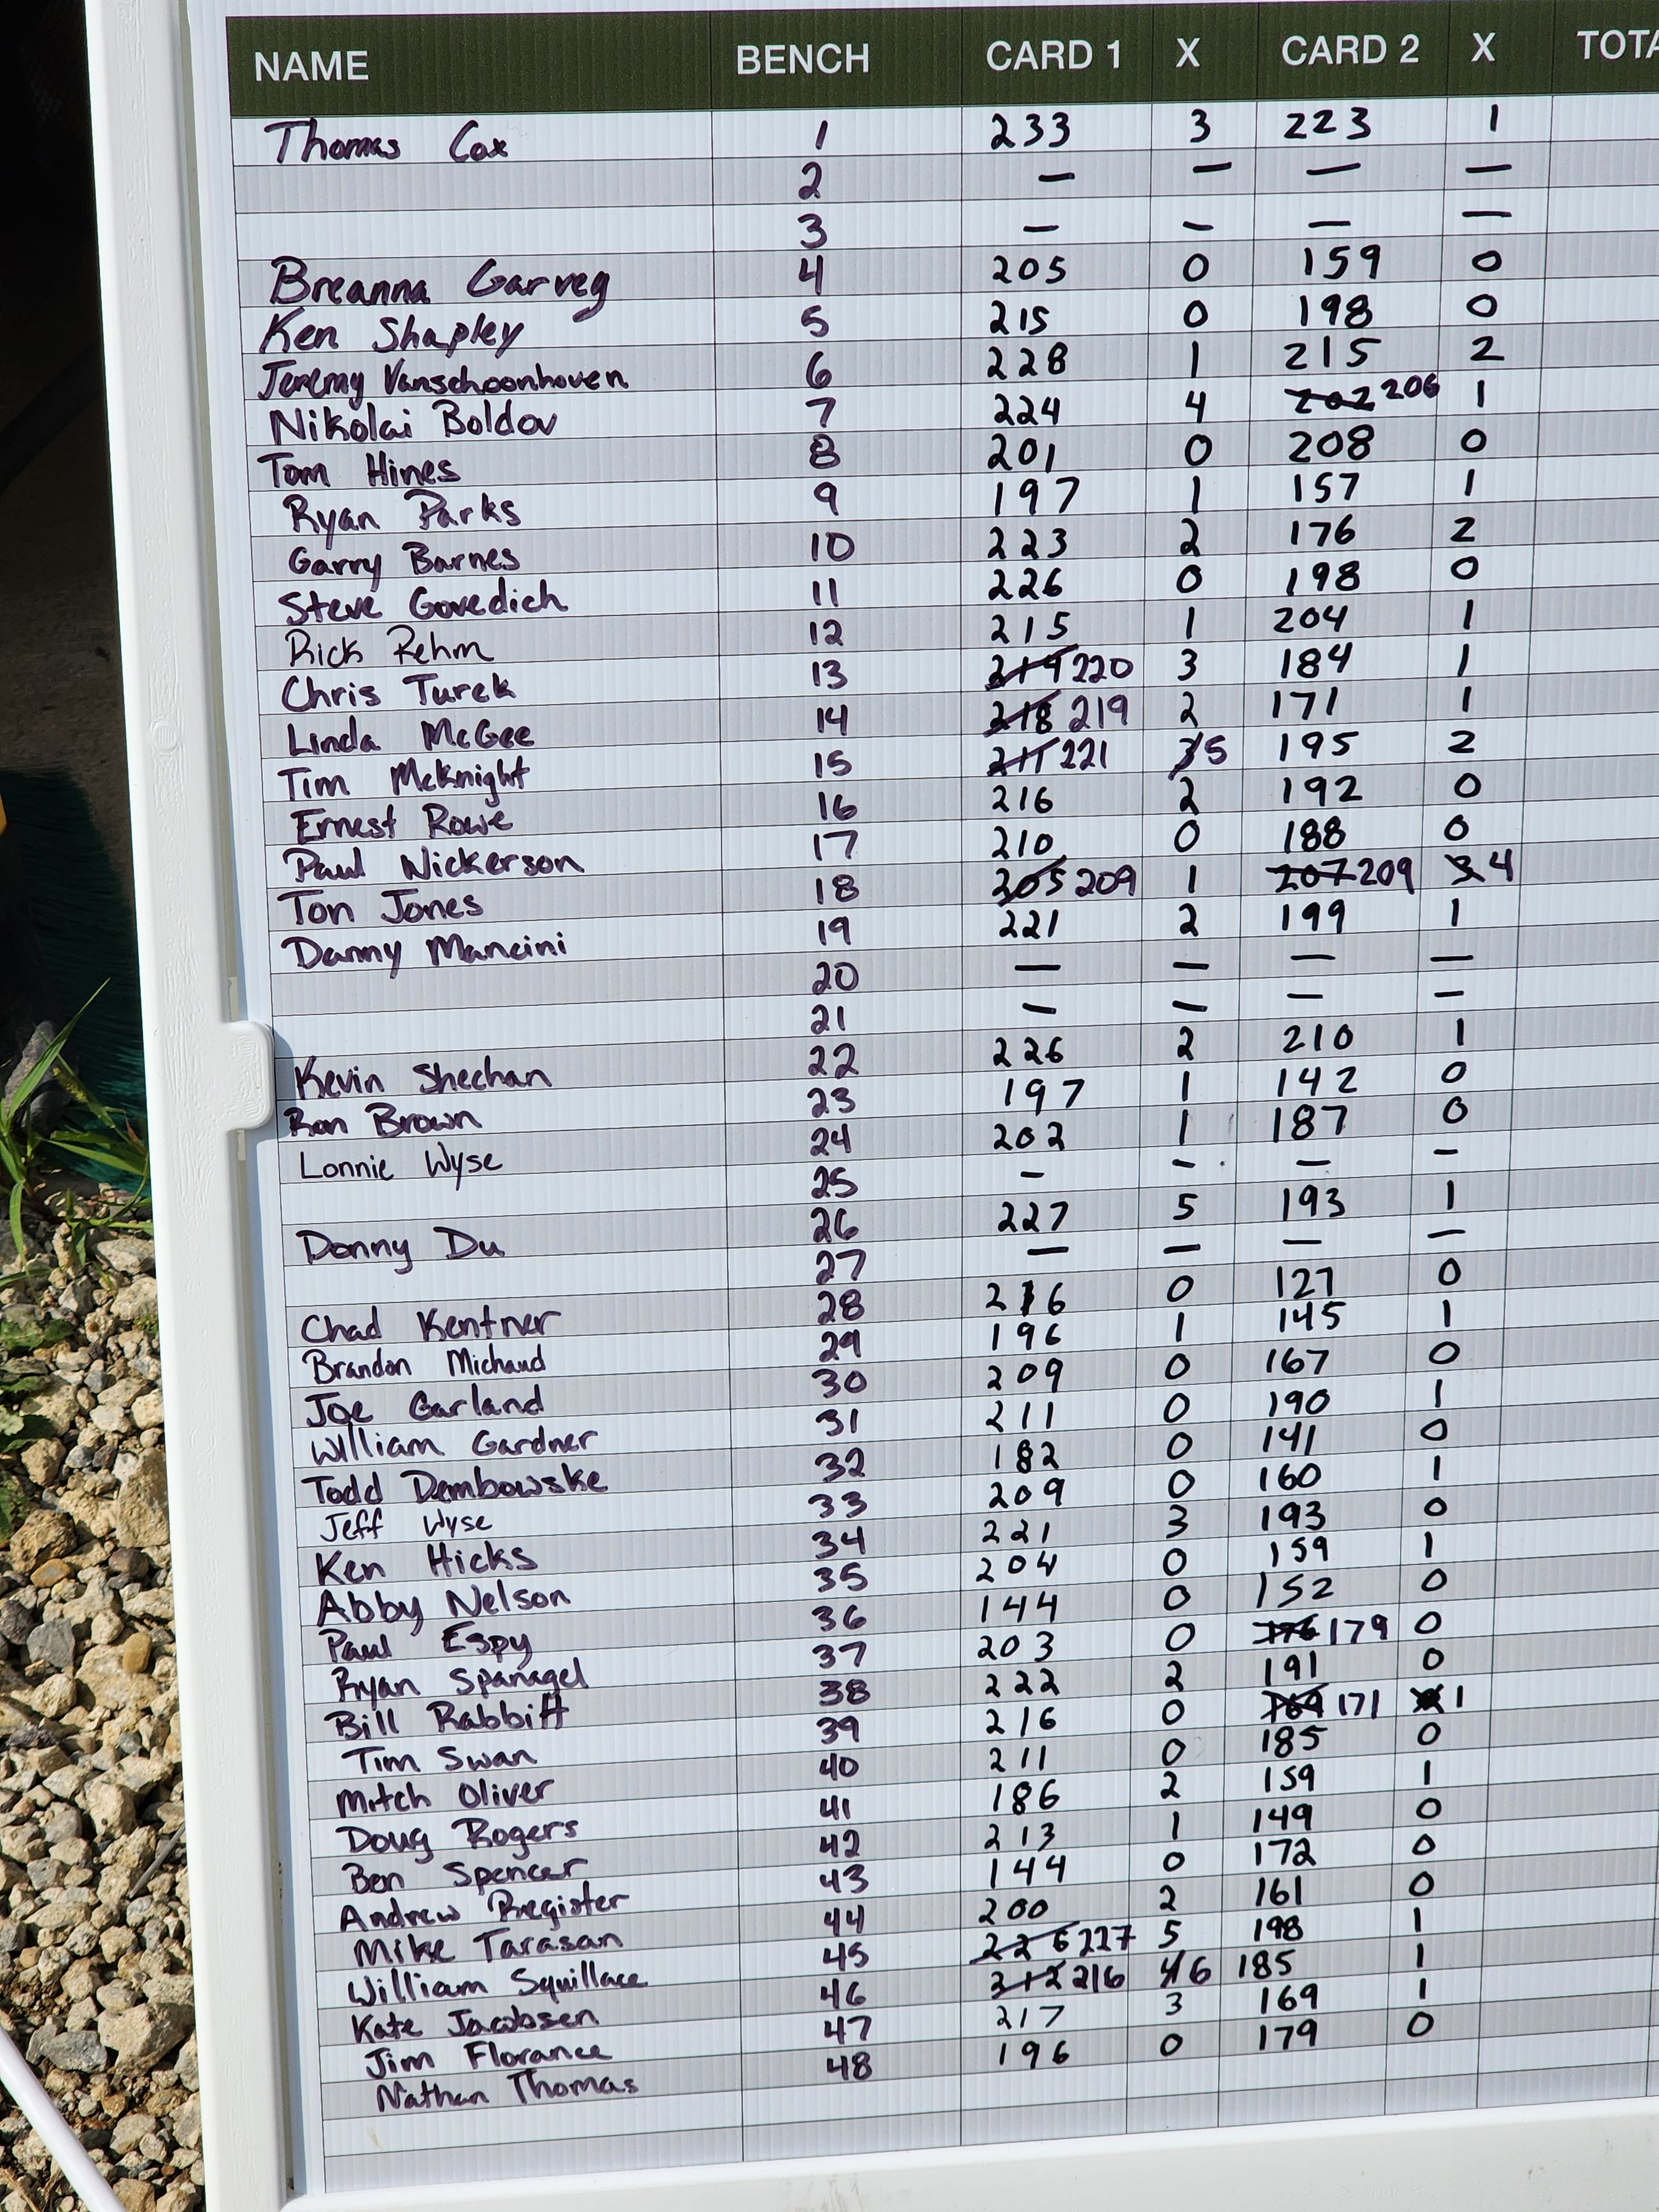 NAME BENCH CARD 1 X CARD 2 X TOTA
Thomas Cox 1 233 3 223 1
2 — — — —
3 — — — —
Breanna Garveg 4 205 0 159 0
Ken Shapley 5 215 0 198 0
Jeremy Vanschoonhoven 6 228 1 215 2
Nikolai Boldov 7 224 4 202 206 1
Tom Hines 8 201 0 208 0
Ryan Parks 9 197 1 157 1
Garry Barnes 10 223 2 176 2
Steve Govedich 11 226 0 198 0
Rick Rehm 12 215 1 204 1
Chris Turek 13 219 220 3 184 1
Linda McGee 14 218 219 2 171 1
Tim McKnight 15 211 221 3 5 195 2
Ernest Rowe 16 216 2 192 0
Paul Nickerson 17 210 0 188 0
Ton Jones 18 205 209 1 207 209 3 4
Danny Mancini 19 221 2 199 1
20 — — — —
21 — — — —
Kevin Sheehan 22 226 2 210 1
Ron Brown 23 197 1 142 0
Lonnie Wyse 24 202 1 187 0
25 — — — —
Donny Du 26 227 5 193 1
27 — — — —
Chad Kentner 28 216 0 127 0
Brandon Michaud 29 196 1 145 1
Joe Garland 30 209 0 167 0
William Gardner 31 211 0 190 1
Todd Dembowske 32 182 0 141 0
Jeff Wyse 33 209 0 160 1
Ken Hicks 34 221 3 193 0
Abby Nelson 35 204 0 159 1
Paul Espy 36 144 0 152 0
Ryan Spanagel 37 203 0 176 179 0
Bill Rabbitt 38 222 2 191 0
Tim Swan 39 216 0 169 171 1
Mitch Oliver 40 211 0 185 0
Doug Rogers 41 186 2 159 1
Ben Spencer 42 213 1 149 0
Andrew Register 43 144 0 172 0
Mike Tarasan 44 200 2 161 0
William Squillace 45 226 227 5 198 1
Kate Jacobsen 46 212 216 4 6 185 1
Jim Florance 47 217 3 169 1
Nathan Thomas 48 196 0 179 0